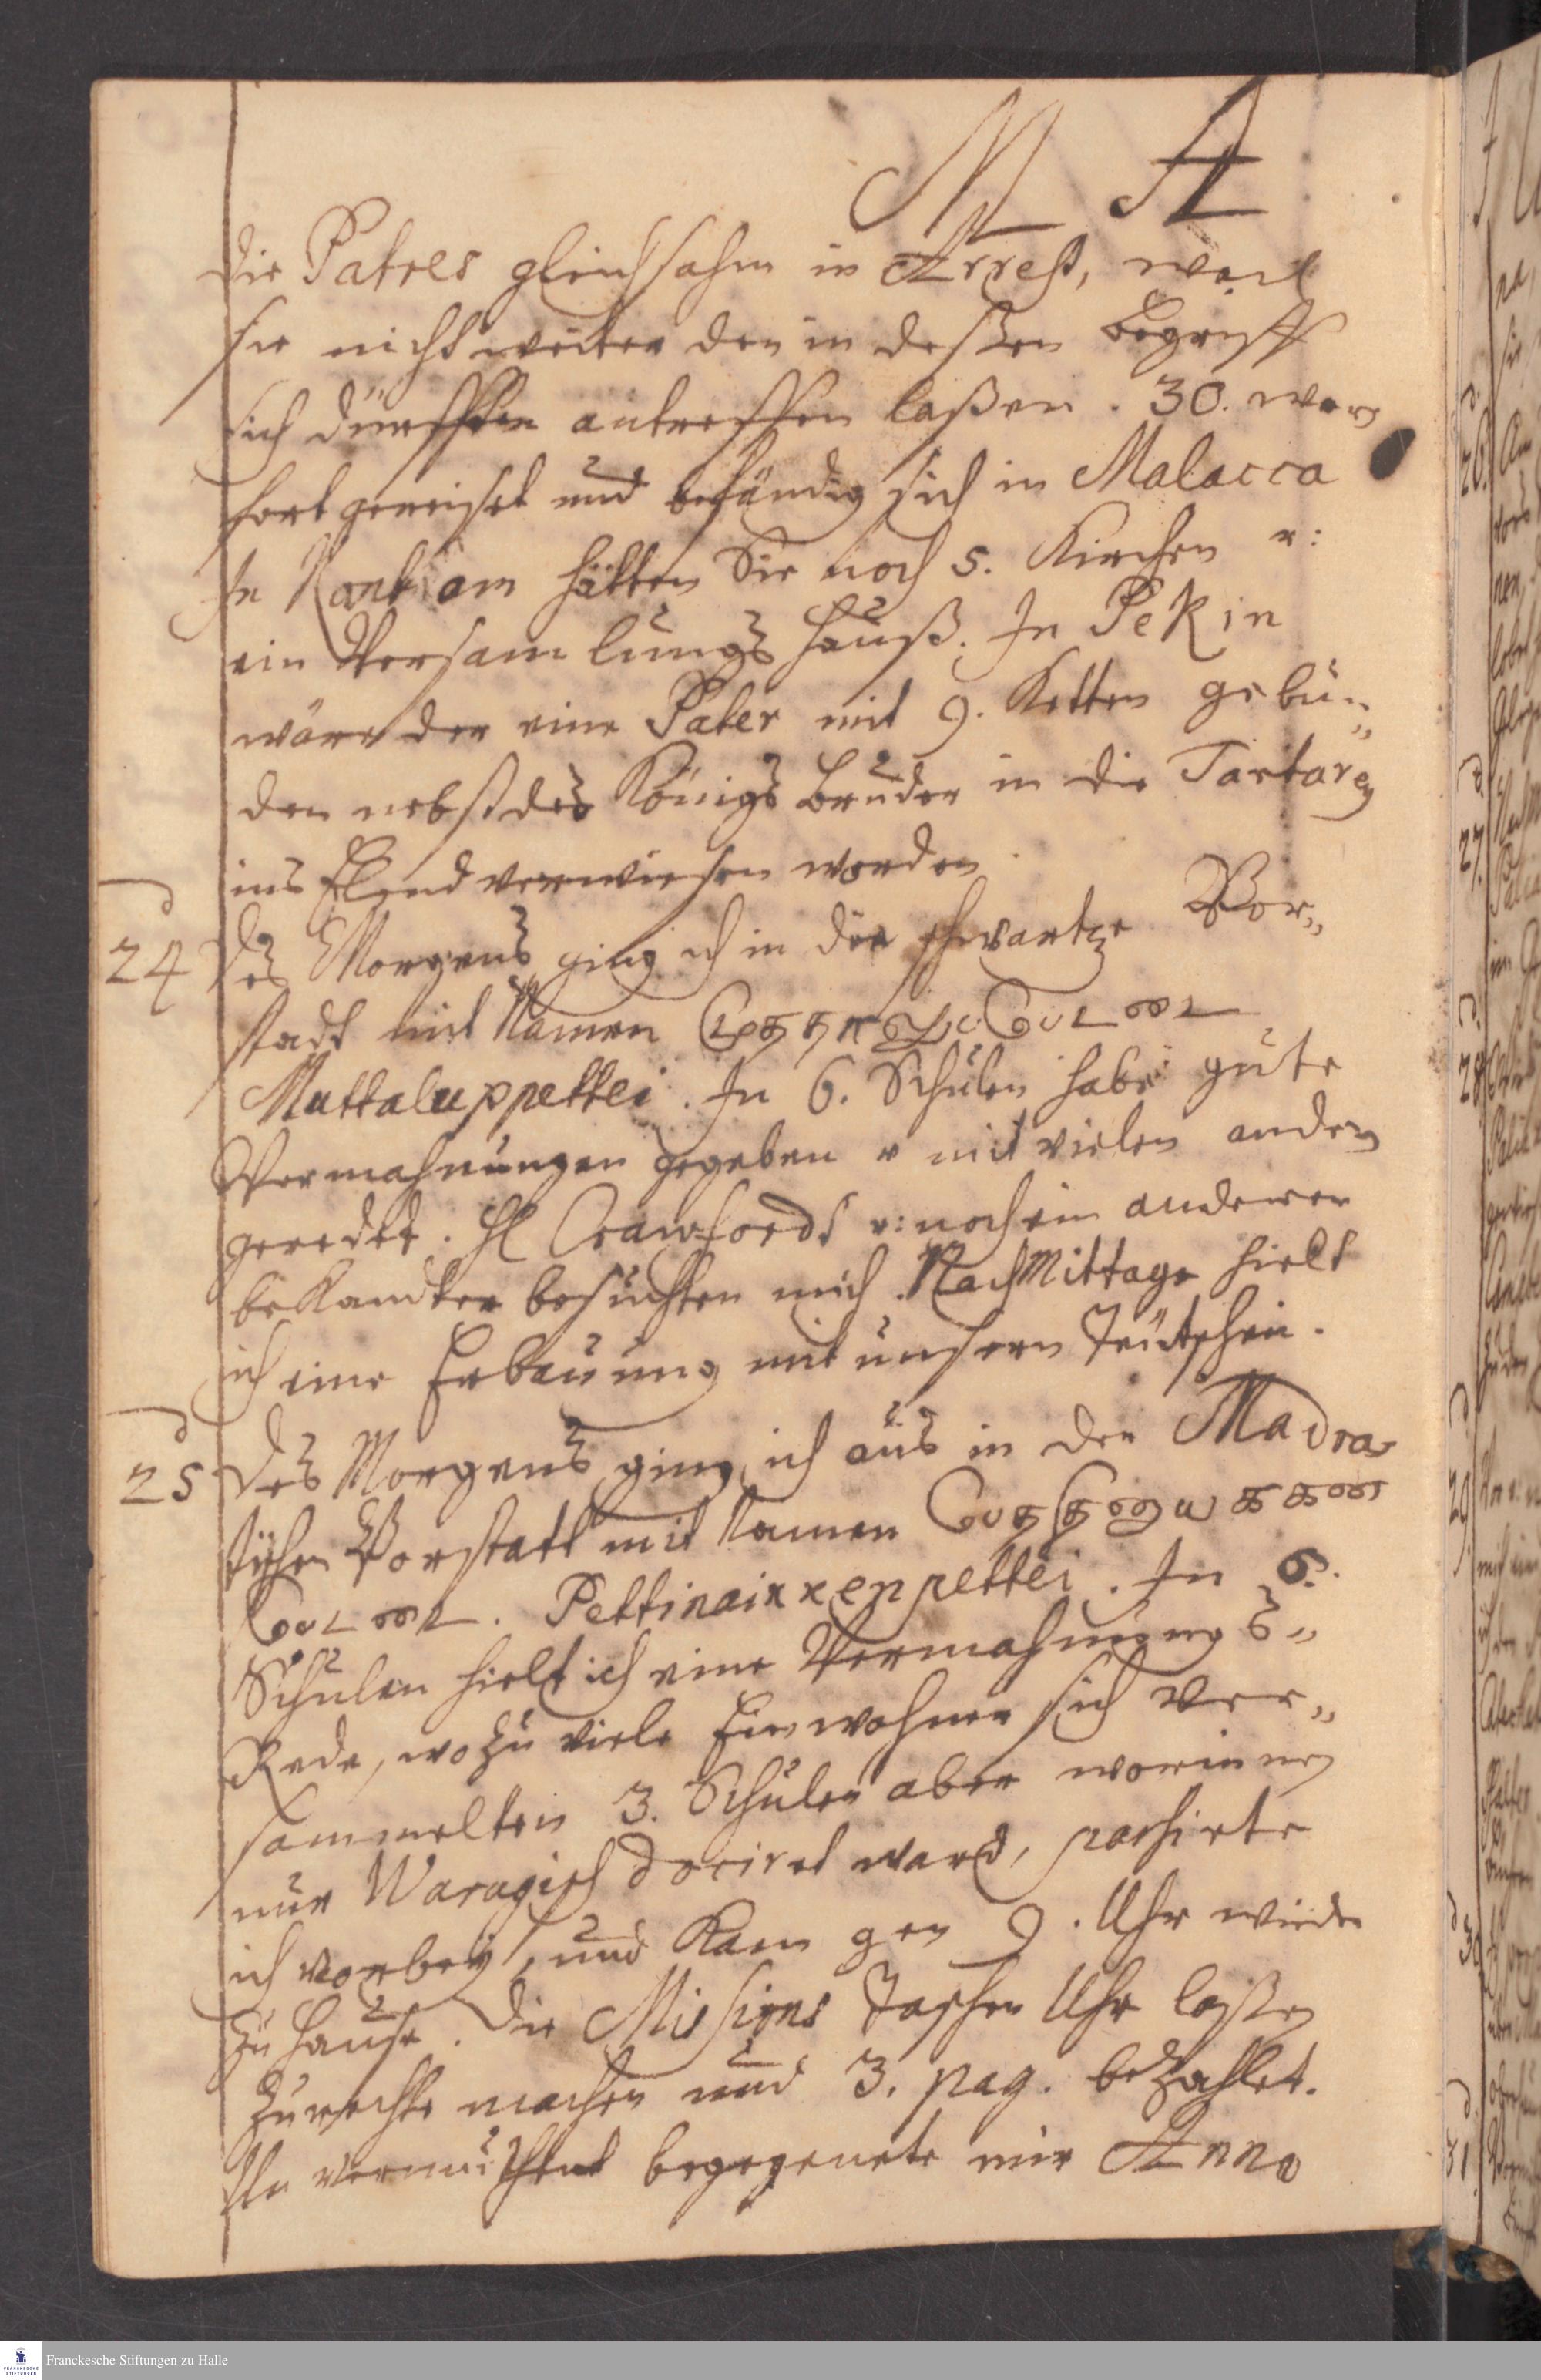 M A
die Patres gleichsahm in Arrest, weil
sie nicht weiter den in deßen Begriff
sich dürfften antreffen laßen. 30. wären
fort gereiset und befänden sich in Malacca
In Kantiom hätten Sie noch 5. Kirchen u:
ein Versamlungs Hauß. In Pekin
wäre der eine Pater mit 9. Ketten gebun„
den nebst des Königs Bruder in die Tartarey
ins Elend verwiesen worden.
d 24 Des Morgens ging ich in die schwartze Vor„
stadt mit Namen முத்தாலுப்பேட்டை
Muttaluppettei. In 6. Schulen habe gute
Vermahnungen gegeben u mit vielen andern
geredet. H Crawfords u: noch ein anderer
bekandter besuchten mich. NachMittage hielt
ich eine Erbauung mit unsern Teutschen.
d 25 Des Morgens ging ich aus in der Madras
tischen Vorstatt mit Namen பெத்திநாயக்கன்
பேட்டை. Pettinaikkenpettei. In 6.
Schulen hielt ich eine Vermahnungs„
Rede, wozu viele Einwohner sich ver„
sammelten 3. Schulen aber worinnen
nur Warugisch dociret ward, pashirte
ich vorbey, und kam gen 9. Uhr wieder
zu Hause. Die Missions Taschen Uhr laßen
zurechte machen und 3. pag. bezahlet.
Un vermuthet begegenete mir Anno
26.
27.
28
29
30
31
Franckesche Stiftungen zu Halle